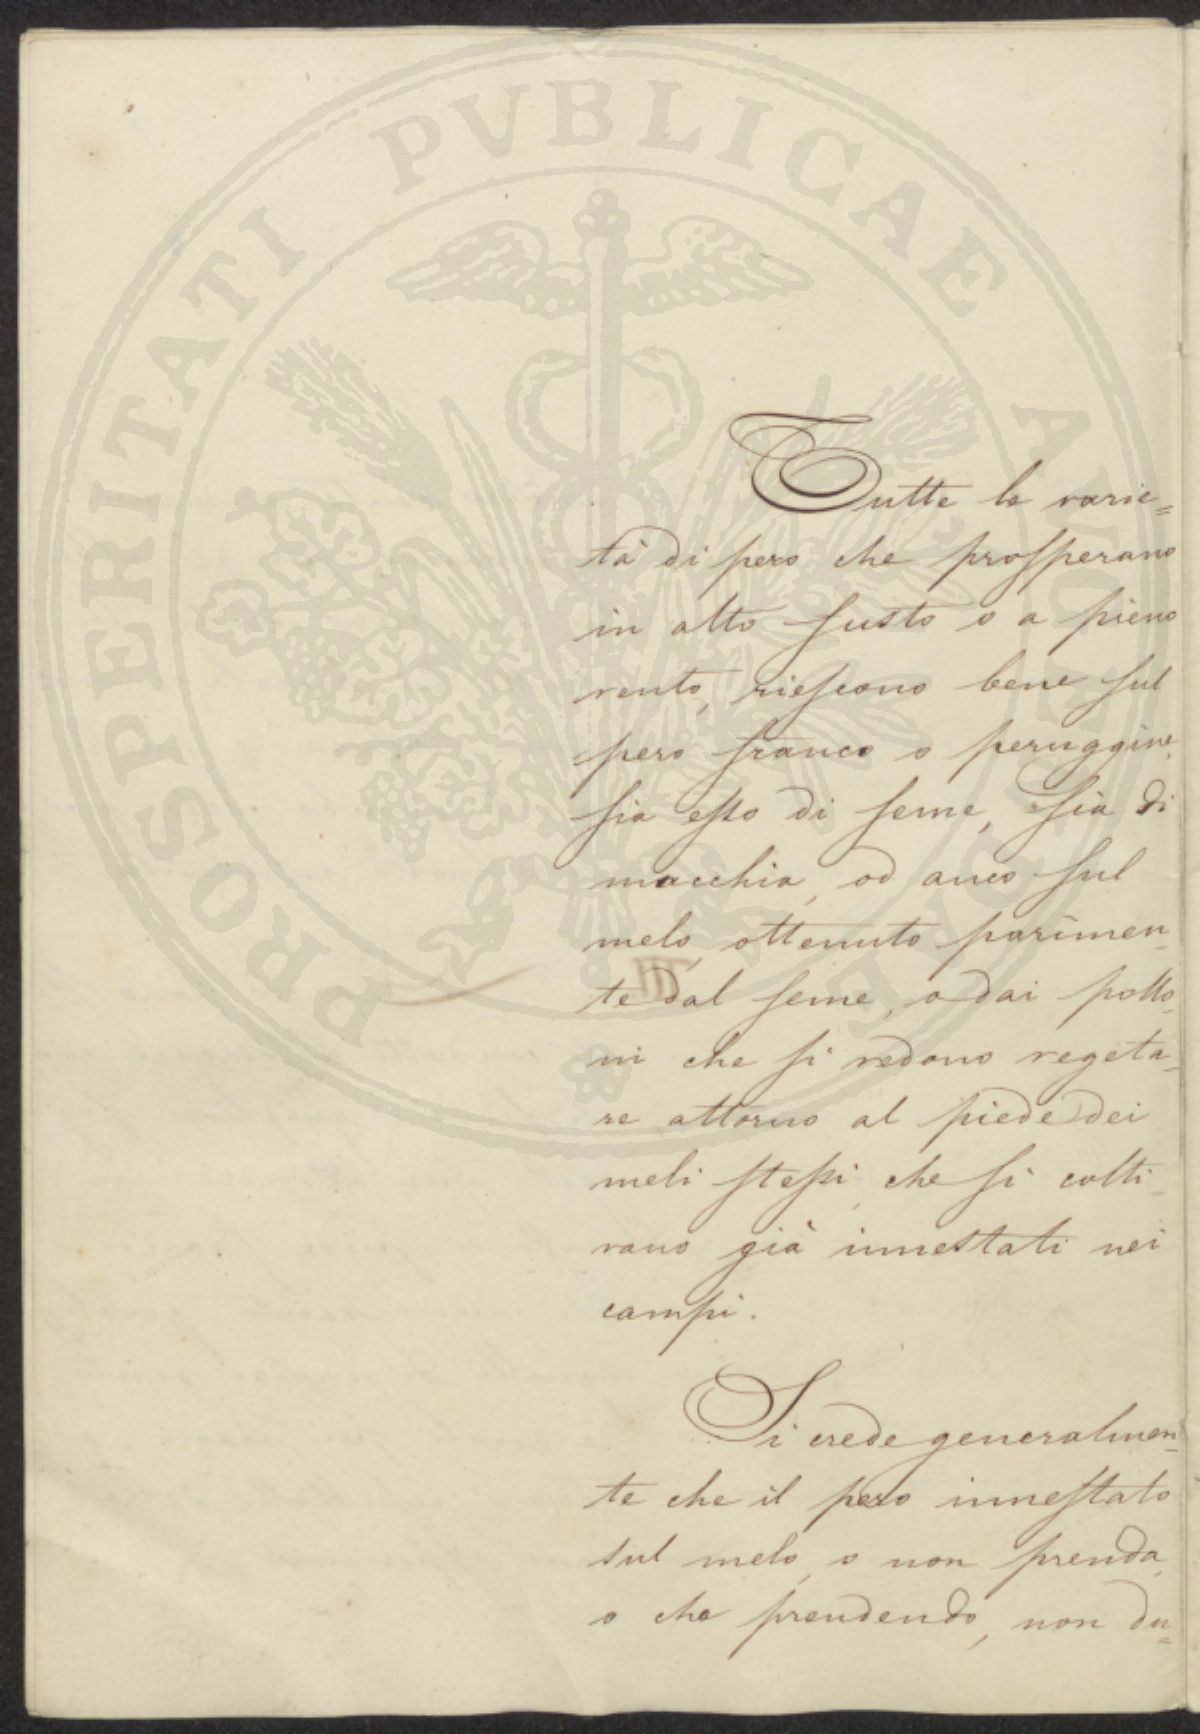 PROSPERITATI PVBLICAE AVGENDAE
Tutte le varie=
tà di pero che prosperano
in alto fusto o a pieno
vento, riescono bene sul
pero franco o peruggine,
sia esso di seme, sia di
macchia, od anco sul
melo, ottenuto parimen-
te dal seme, o dai pollo-
ni che si vedono vegeta-
re attorno al piede dei
meli stessi, che si colti-
vano già innestati nei
campi.
Si crede generalmen-
te che il pero innestato
sul melo, o non prenda,
o che prendendo, non du=